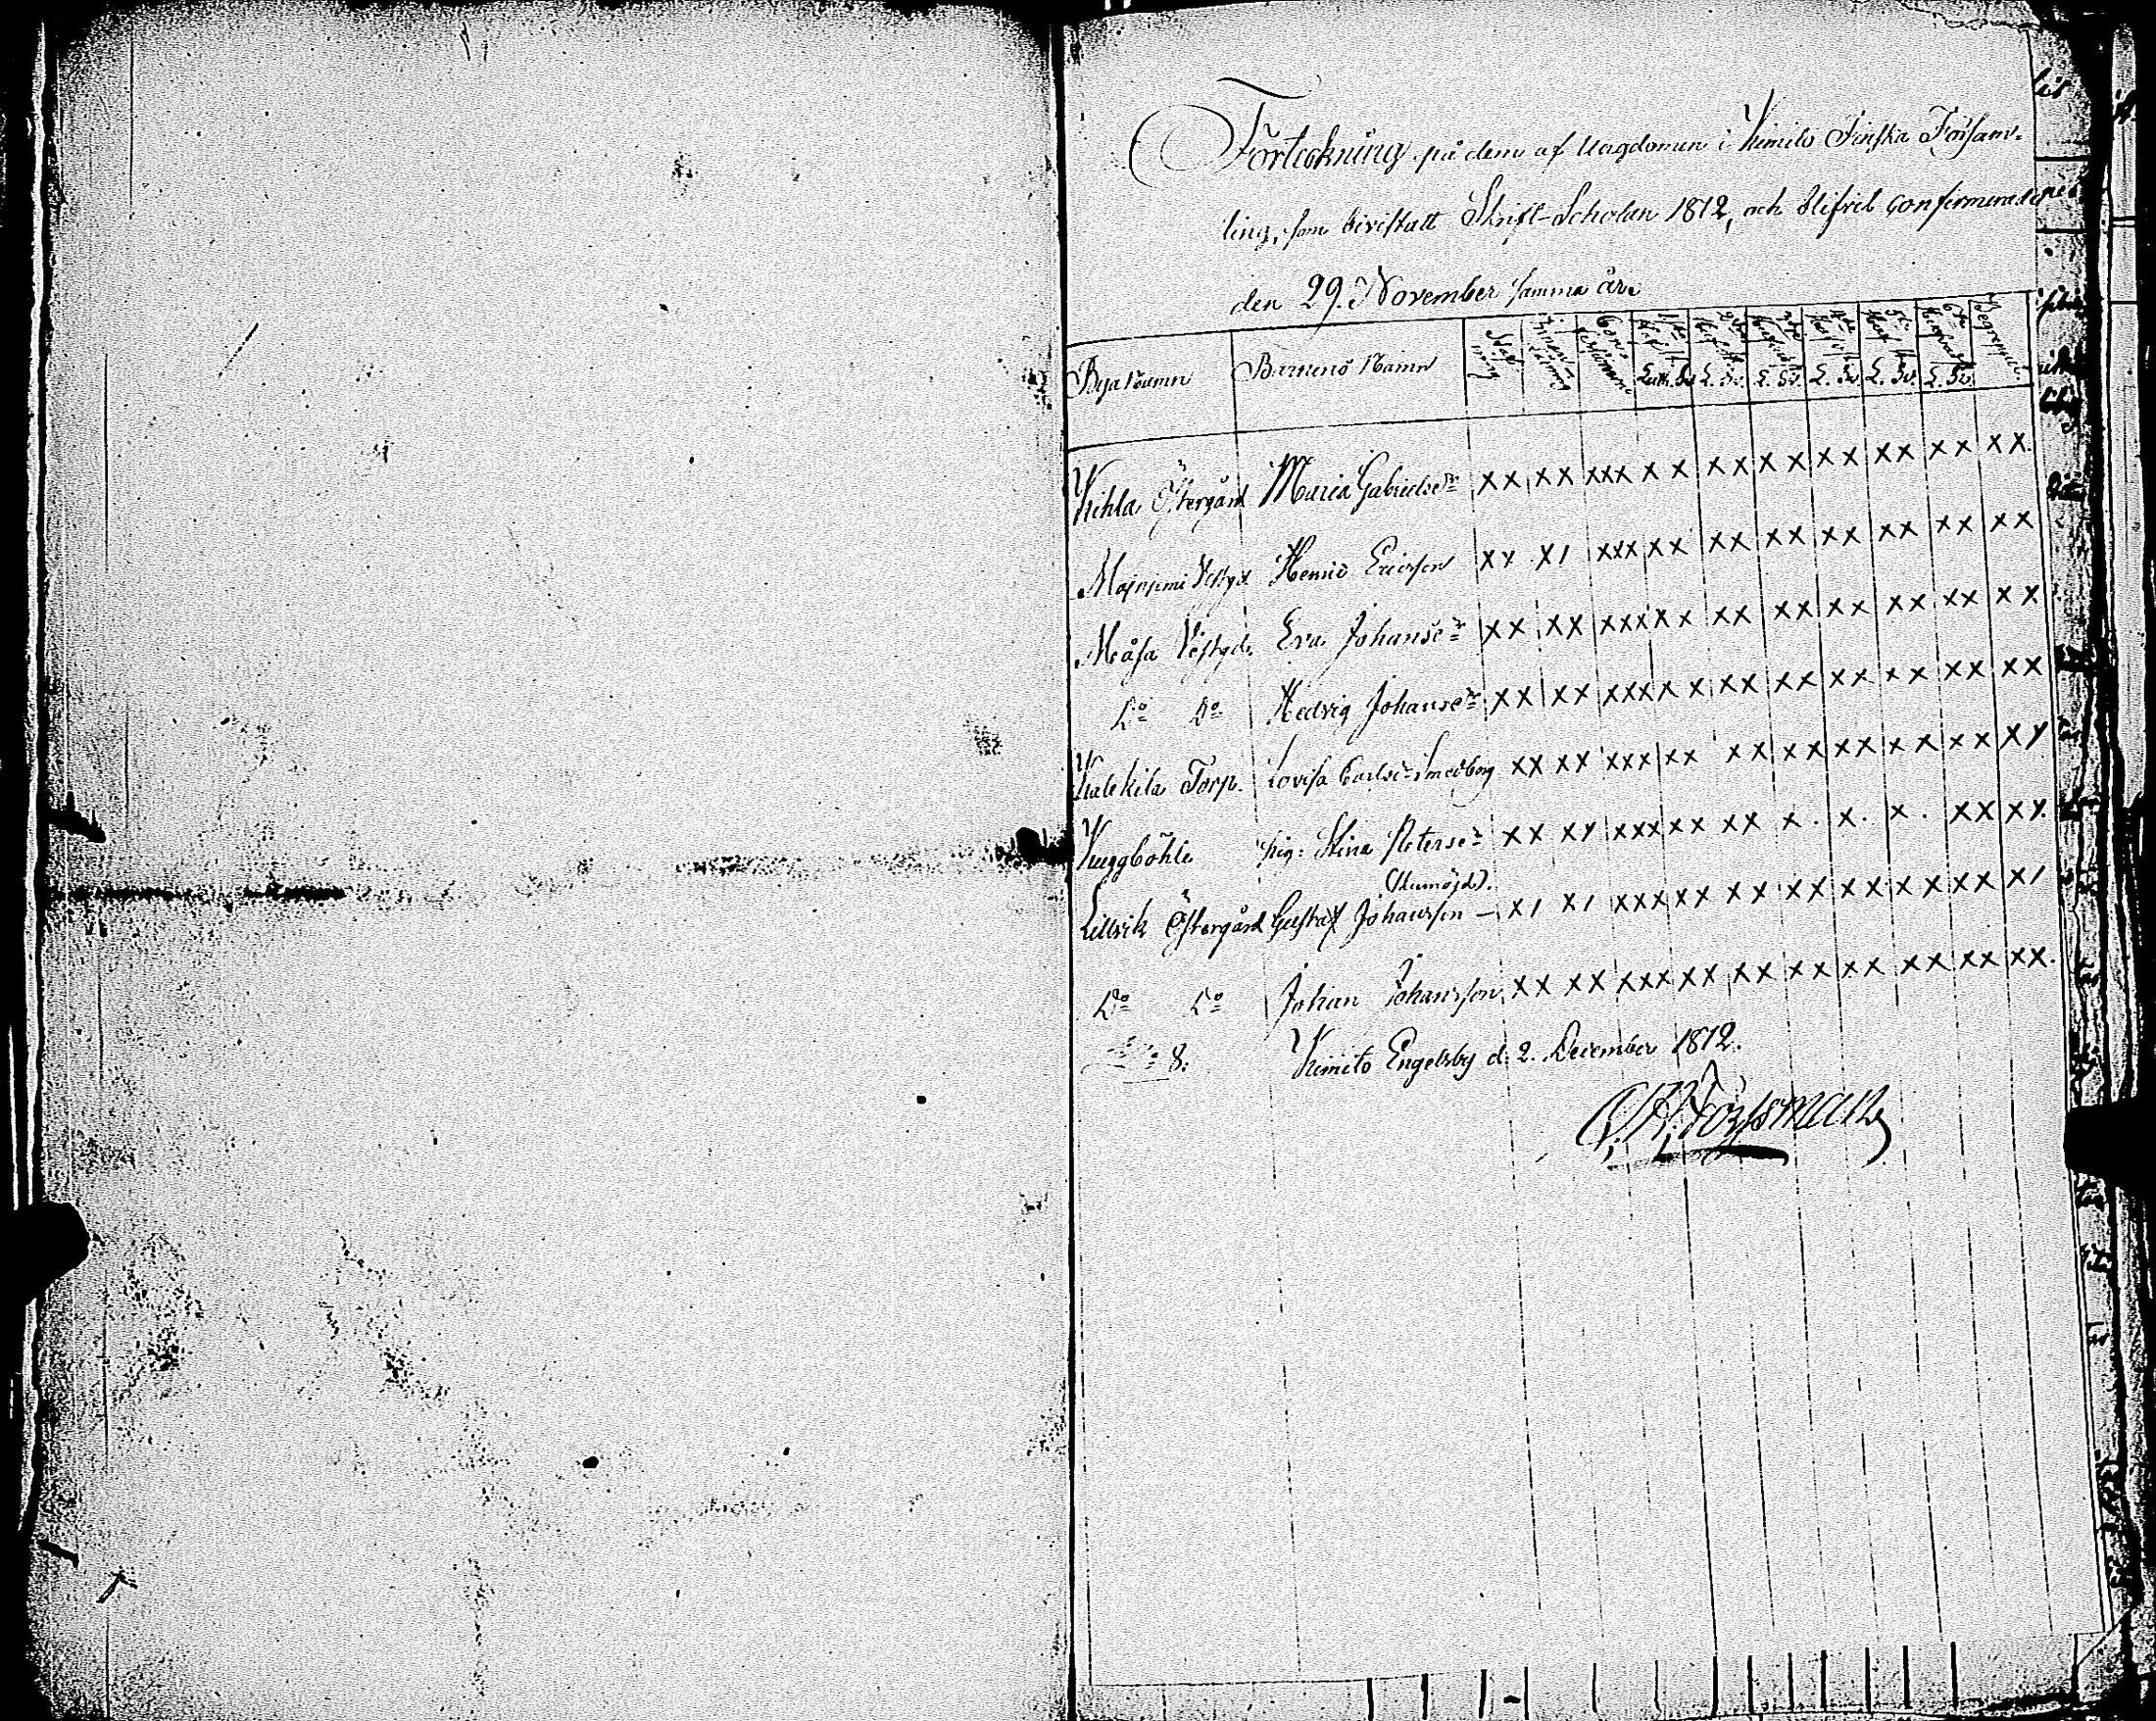 Förteckning på dem af Ungdomen i Kimito Finska Försam-
ling, som bivistatt Skrift-Scholan 1812, och blifvit confirmerade
den 29. November samma år.
Bya Namn Barnens Namn Begreppet
Luth. Sv. L. Sv. L. Sv. L. Sv. L. Sv. L. Sv.
Kihla Östergård Maria Gabrielsdr xx xx xxx xx xx xx xx xx xx xx.
Majniemi Vestgd Henric Ericsson xx x1 xxx xx xx xx xx xx xx xx
Måsa Vestgd. Eva Johansdr xx xx xxx xx xx xx xx xx xx xx
Do Do Hedvig Johansdr xx xx xxx xx xx xx xx xx xx xx
Torp. Lovisa Carlsdr Smedberg xx xx xxx xx xx xx xx xx xx xx
Kuggböhle pig: Stina Petersdr xx xx xxx xx xx x. x. x. xx xx.
Lillvik Östergård Gustaf Johansson — x1 x1 xxx xx xx xx xx xx xx x1
Do Do Johan Johansson xx xx xxx xx xx xx xx xx xx xx.
8. Kimito Engelsby d. 2. December 1812.